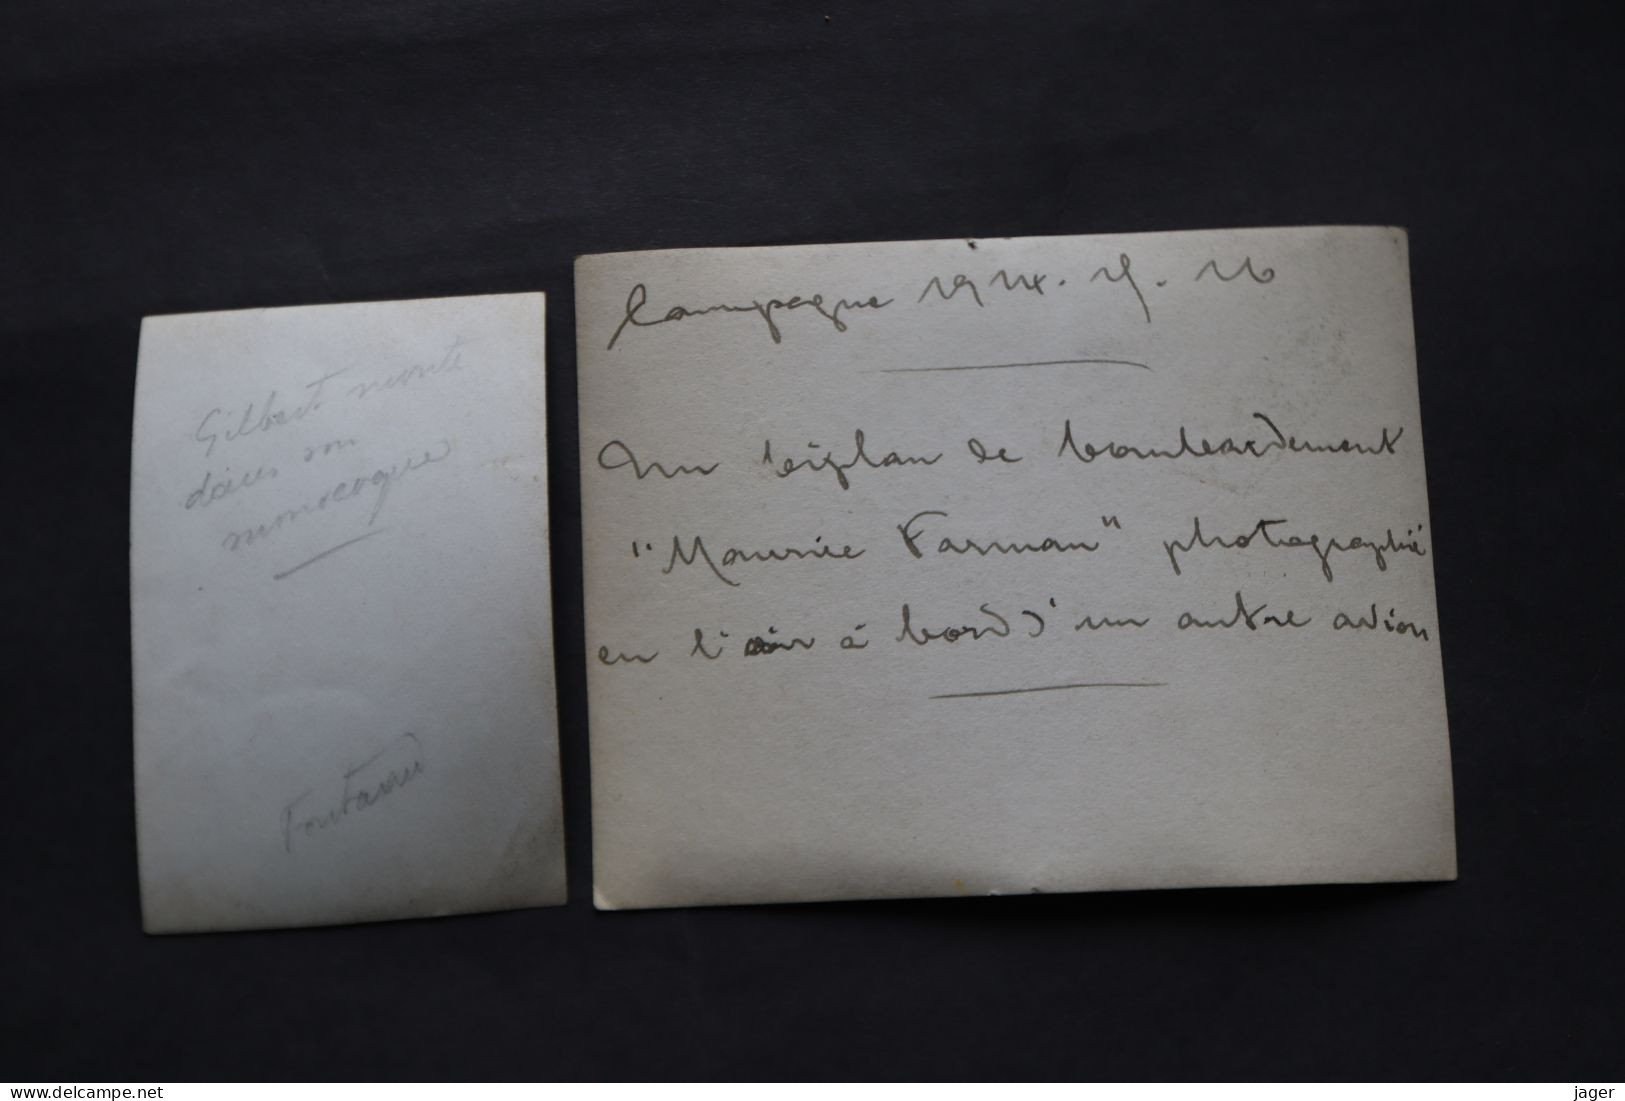 Gilbert monte
dans son
monocoque
Campagne 1914. 15. 16
Un biplan de bombardement
"Maurice Farman" photographié
en l'air à bord d'un autre avion
www.delcampe.net
jager